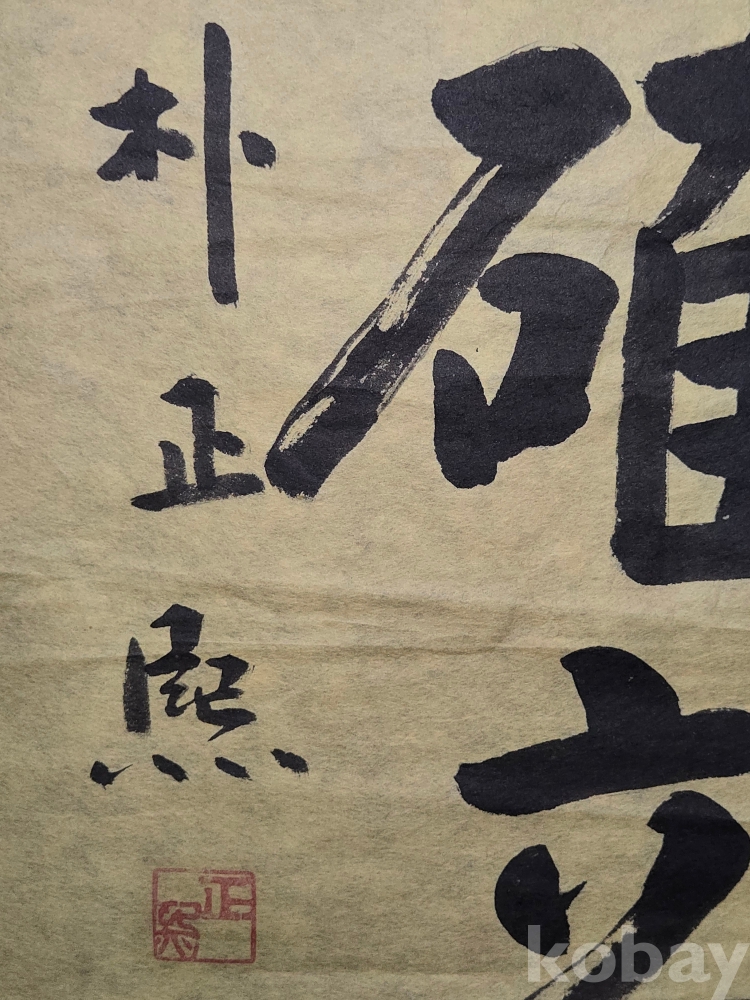 確立
朴正熙
正熙
kobay